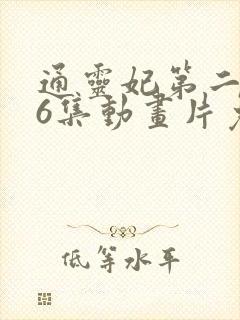 通靈妃第二
6集動畫片
低等水平